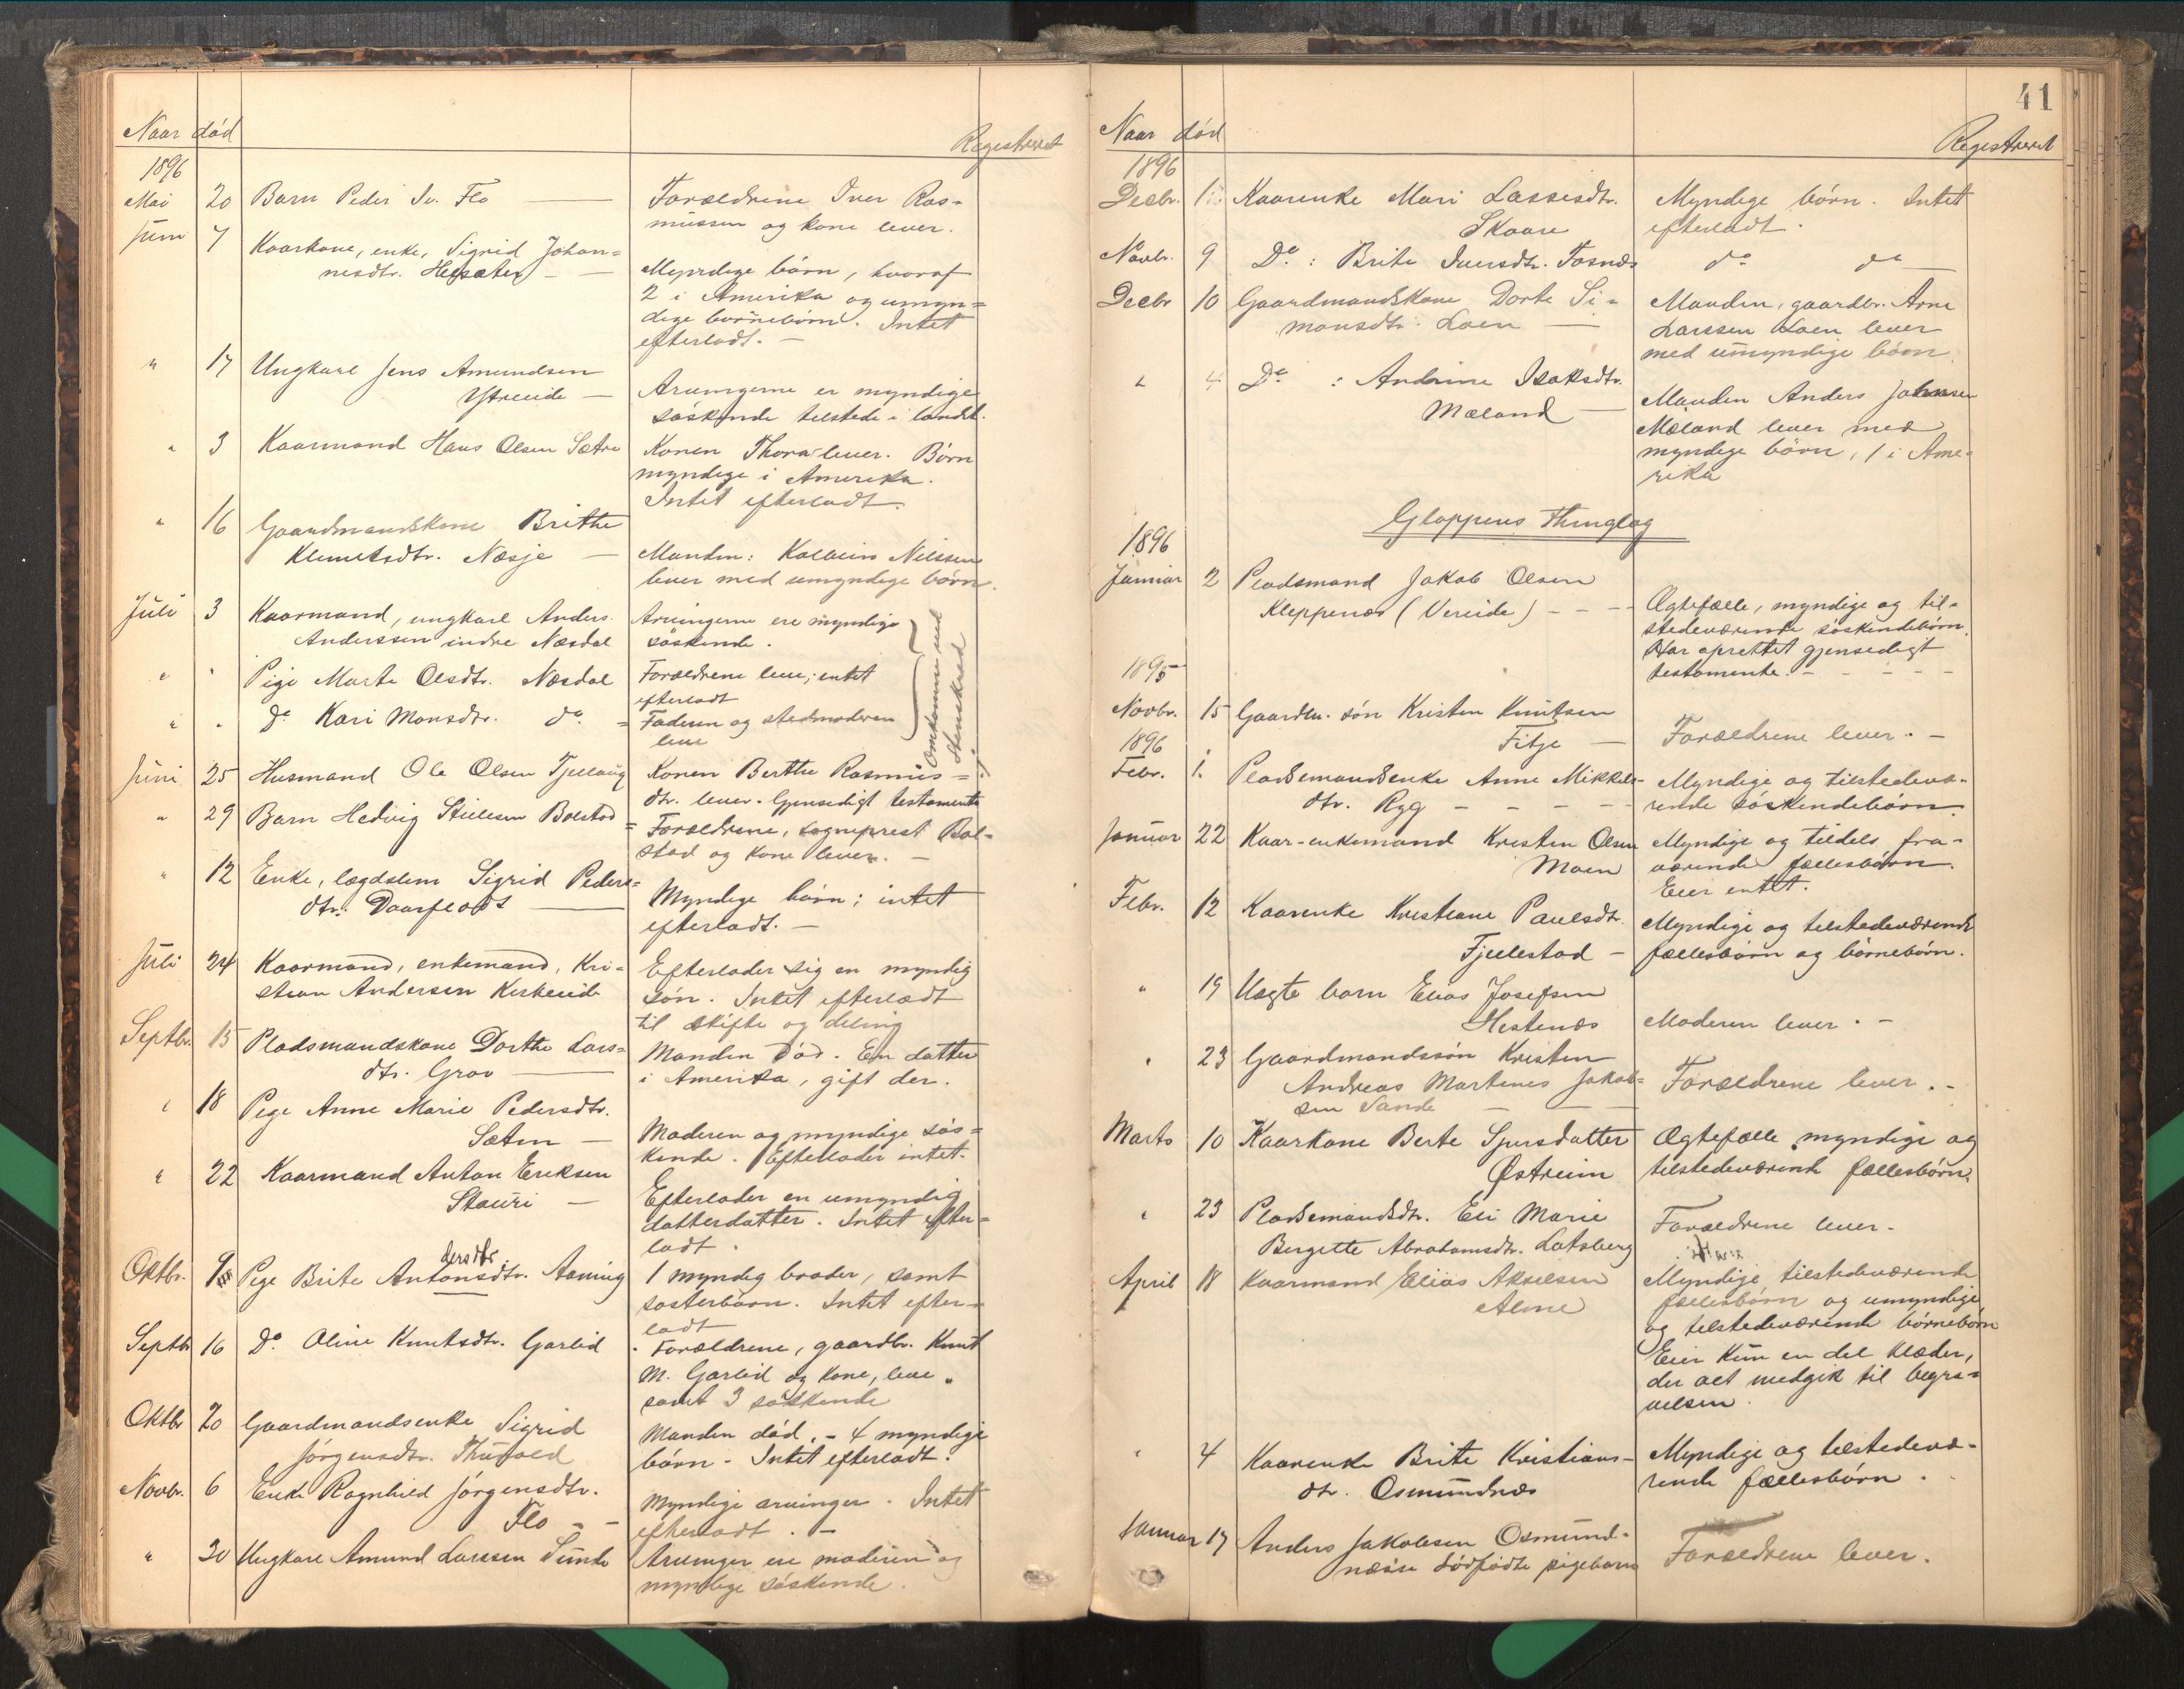 Naar død
Registreret
1896
Mai 20 Barn Peder Iv. Flo — Forældrene Iver Ras=
mussen og kone lever.
Juni 7 Kaarkone, enke, Sigrid Johan=
nesdtr. Hegsæter — Myndige børn, hvoraf
2 i Amerika og umyn=
dige børnebørn. Intet
efterladt. —
" 17 Ungkarl Jens Amundsen
Ytreeide — Arvingerne er myndige
søskende tilstede i landet.
" 3 Kaarmand Hans Olsen Sætre Konen Thora lever. Børn
myndige i Amerika.
Intet efterladt.
" 16 Gaardmandskone Brithe
Klemetsdtr. Nesje — Manden: Kolbein Nilssen
lever med umyndige børn.
Juli 3 Kaarmand, ungkarl Anders
Anderssen indre Næsdal Arvingerne ere myndige
søskende.
" " Pige Marte Olsdtr. Næsdal Forældrene leve; intet
efterladt
" " do Kari Monsdtr. do. = Faderen og stedmoderen
leve
Omkomne ved
stenskred
Juni 25 Husmand Ole Olsen Tjellaug Konen Berthe Rasmus=
dtr. lever. Gjensidigt testamente
" 29 Barn Hedvig Bolstad = Forældrene, sogneprest Bol=
stad og kone lever. —
" 12 Enke, lægdslem Sigrid Peders=
dtr. Daarflodt — Myndige børn; intet
efterladt. —
Juli 24 Kaarmand, enkemand, Kri=
stian Andersen Kirkeeide Efterlader sig en myndig
søn. Intet efterladt
til skifte og deling
Septbr. 15 Pladsmandskone Dorthe Lars=
dtr. Grov — Manden død. En datter
i Amerika, gift der.
" 18 Pige Anne Marie Pedersdtr.
Sætren — Moderen og myndige søs=
kende. Efterlader intet.
" 22 Kaarmand Anton Eriksen
Stauri — Efterlader en umyndig
datterdatter. Intet efter=
ladt.
dersdtr
Oktbr. 9 Pige Brite Antonsdtr. Aaning 1 myndig broder, samt
søsterbørn. Intet efter=
ladt
Septbr 16 Do Oline Knutsdtr. Garlid Forældrene, gaardbr. Knut
M. Garlid og kone, leve
samt 3 søskende
Oktbr 20 Gaardmandsenke Sigrid
Jørgensdtr. Manden død. — 4 myndige
børn — Intet efterladt.
Novbr. 6 Enke Ragnhild Jørgensdtr.
Flo — Myndige arvinger. Intet
efterladt. —
" 30 Ungkarl Amund Larssen Sunde Arvinger ere moderen og
myndige søskende.
41
Naar død
Registreret
1896
Decbr. 1. Kaarenke Mari Lassesdtr.
Skaare Myndige børn. Intet
efterladt.
Novbr. 9 Do: Brite Iversdtr. Tosnæs do do
Decbr 10 Gaardmandskone Dorte Si=
monsdtr. Loen — Manden, gaardbr. Arne
Larssen Loen lever
med umyndige børn.
" 4 Do: Andrine Isaksdtr.
Mæland — Manden Anders Johnsen
Mæland lever med
myndige børn, 1 i Ame=
rika
Gloppens Thinglag
1896
Januar 2 Pladsmand Jakob Olsen
Kleppenæs (Vereide) — Ægtefælle, myndige og til=
stedeværende søskendebørn.
Har oprettet gjensidigt
testamente.
1895
Novbr. 15 Gaardbr. søn Kristen Knutsen
Fitje — Forældrene lever. —
1896
Febr. 1. Pladsemandsenke Anne Mikkels=
dtr. Ryg — Myndige og tilstedevæ=
rende søskendebørn.
Januar 22 Kaar-enkemand Kristen Olsen
Moen Myndige og tildels fra=
værende fællesbørn.
Eier intet.
Febr. 12 Kaarenke Kristiane Paulsdtr.
Fjellestad — Myndige og tilstedeværende
fællesbørn og børnebørn.
" 19 Uægte barn Elias Josefsen
Hestenæs Moderen lever. —
" 23 Gaardmandssøn Kristen
Andreas Martenus Jakob=
sen Sande — Forældrene lever. —
Marts 10 Kaarkone Berte Sjursdatter
Østreim Ægtefælle myndige og
tilstedeværende fællesbørn.
" 23 Pladsemandsdtr. Eli Marie
Bergette Abrahamsdtr. Lotsberg Forældrene lever.
April 18 Kaarmand Elias Akselsen
Alme Myndige tilstedeværende
fællesbørn og umyndige
og tilstedeværende børnebørn
Eier kun en del klæder,
der alt medgik til begra=
velsen.
" 4 Kaarenke Brite Kristians=
dtr. Osmundnæs Myndige og tilstedevæ=
rende fællesbørn.
Januar 17 Anders Jakobsen Osmund=
næs's dødfødte pigebarn Forældrene lever.